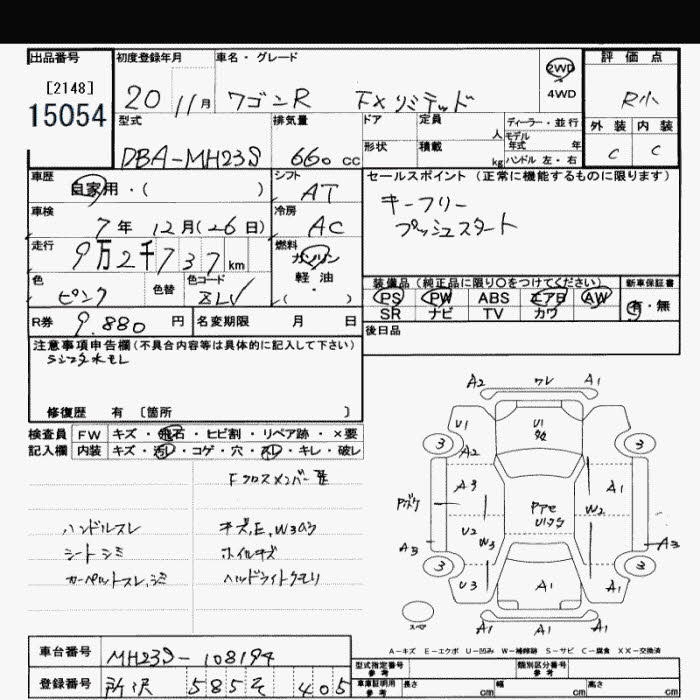 出品番号 初度登録年月 車名・グレード 2WD 評価点
[2148] 20 11月 ワゴンR FXリミテッド 4WD R小
15054
型式 排気量 ドア 定員 人 ディーラー・並行 外装 内装
DBA-MH23S 660 cc 形状 積載 kg モデル年式 年 ハンドル 左・右 C C
車歴 自家用・( ) シフト AT セールスポイント (正常に機能するものに限ります)
車検 7年 12月(26日) 冷房 AC キーフリー
プッシュスタート
走行 9万2千737km 燃料 ガソリン
軽油
・( )
色 ピンク 色替 色コード ZLV 装備品 (純正品に限り○をつけてください) 新車保証書
PS PW ABS エアB AW 有・無
SR ナビ TV カワ
R券 9.880 円 名変期限 月 日 後日品
注意事項申告欄 (不具合内容等は具体的に記入して下さい)
修復歴 有 〔箇所 〕
検査員 FW キズ・飛石・ヒビ割・リペア跡・×要
記入欄 内装 キズ・汚レ・コゲ・穴・スレ・キレ・破レ
Fクロスメンバー
ハンドルスレ キズ,E,W3あり
シートシミ ホイルキズ
カーペットスレ,シミ ヘッドライトクモリ
A2 ワレ A1
U1 U1
3 A2 3
A3 A1
U2 W3 W2
A3 A3
3 3
U3 A1 A1
A1 A1
スペア
A-キズ E-エクボ U-凹み W-補修跡 S-サビ C-腐食 XX-交換済
車台番号 MH23S-108194
型式指定番号 参考 類別区分番号 参考
登録番号 所沢 585 そ 405
車庫証明用 参考 長さ cm 幅 cm 高さ cm